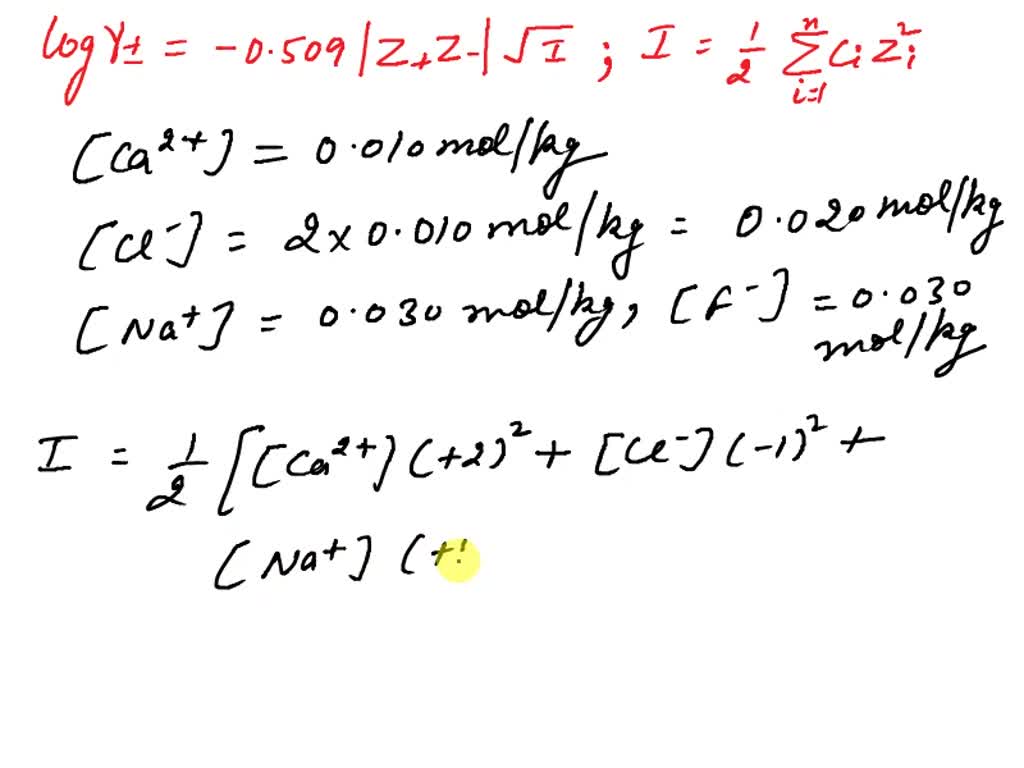 log γ± = -0.509 |Z+Z-| √I ; I = 1/2 Σ(i=1 to n) Ci Zi²
[Ca²⁺] = 0.010 mol/kg
[Cl⁻] = 2 x 0.010 mol/kg = 0.020 mol/kg
[Na⁺] = 0.030 mol/kg, [F⁻] = 0.030 mol/kg
I = 1/2 [[Ca²⁺] (+2)² + [Cl⁻] (-1)² +
[Na⁺] (+1